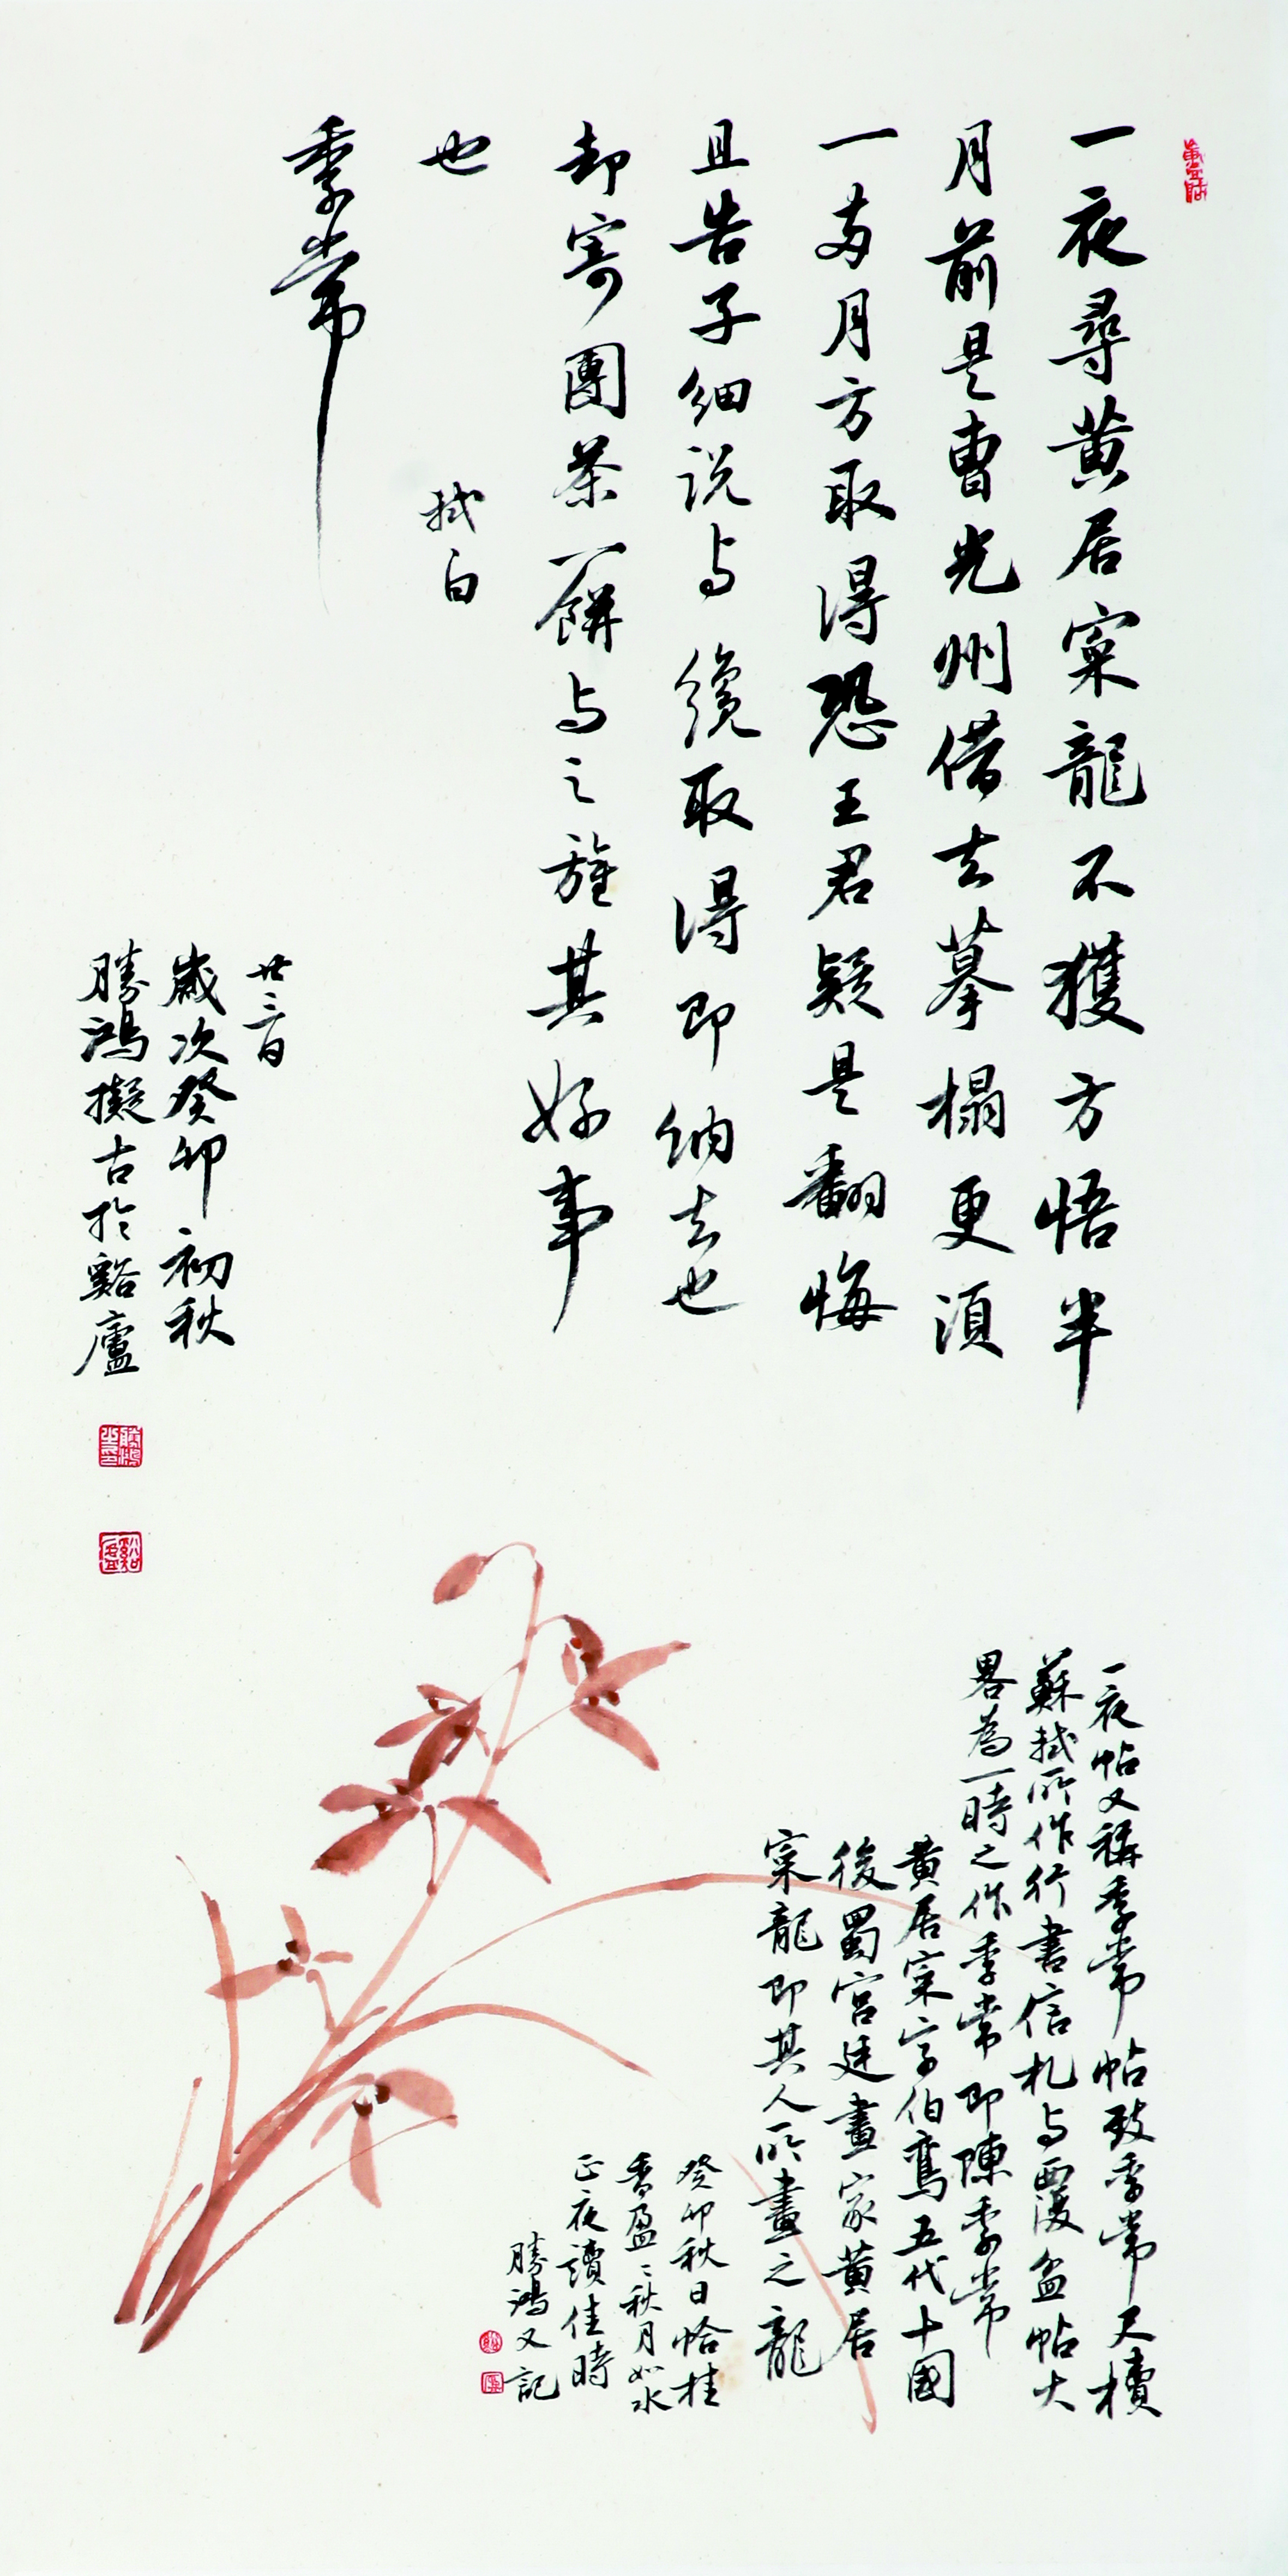 一夜尋黄居寀龍不獲方悟半
月前是曹光州借去摹榻更須
一兩月方取得恐王君疑是翻悔
且告子細説与纔取得即納去也
却寄團茶一餅与之旌其好事
也
軾白
季常
廿三日
歲次癸卯初秋
勝鴻擬古於谿廬
一夜帖又稱季常帖致季常尺牘
蘇軾所作行書信札与覆盆帖大
畧為一時之作季常即陳季常
黄居寀字伯鸞五代十國
後蜀宫廷畫家黄居
寀龍即其人所畫之龍
癸卯秋日恰桂
香盈〻秋月如水
正夜讀佳時
勝鴻又記